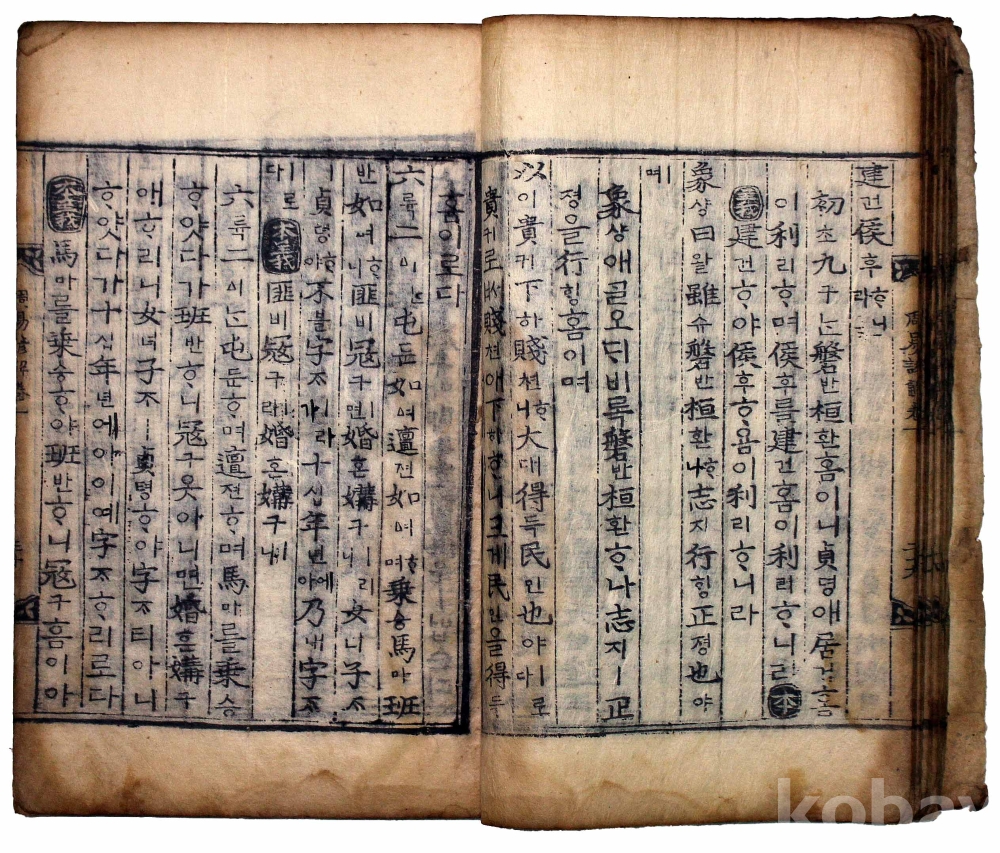 建건侯후ᄒᆞ니라
初초九구ᄂᆞᆫ磐반桓환홈이니貞뎡애居거홈
이利리ᄒᆞ며侯후를建건홈이利리ᄒᆞ니라本
義建건ᄒᆞ야侯후ᄒᆞ욤이利리ᄒᆞ니라
象샹曰왈雖슈磐반桓환ᄒᆞ나志지行ᄒᆡᆼ正졍也야
ㅣ며
象샹애ᄀᆞᆯ오ᄃᆡ비록磐반桓환ᄒᆞ나志지ㅣ正
졍을行ᄒᆡᆼ홈이며
以이貴귀下하賤쳔ᄒᆞ니大대得득民민也야ㅣ로다
貴귀로ᄡᅥ賤쳔애下하ᄒᆞ니크게民민을得득
홈이로다
六륙二이ᄂᆞᆫ屯듄如여邅젼如여ᄒᆞ며乘승馬마班
반如여ᄒᆞ니匪비冦구ㅣ면婚혼媾구ㅣ리니女녀子ᄌᆞ
ㅣ貞뎡ᄒᆞ야不블字ᄌᆞㅣ라가十십年년에아乃내字ᄌᆞ
ㅣ로다本義匪비冦구ㅣ라婚혼媾구ㅣ니
六륙二이ᄂᆞᆫ屯듄ᄒᆞ며邅젼ᄒᆞ며馬마를乘승
ᄒᆞ얏다가班반ᄒᆞ니冦구옷아니면婚혼媾구
애ᄒᆞ리니女녀子ᄌᆞㅣ貞뎡ᄒᆞ야字ᄌᆞ티아니
ᄒᆞ얏다가十십年년에아이예字ᄌᆞᄒᆞ리로다
本義馬마를乘승ᄒᆞ야班반ᄒᆞ니冦구홈이아
kobay